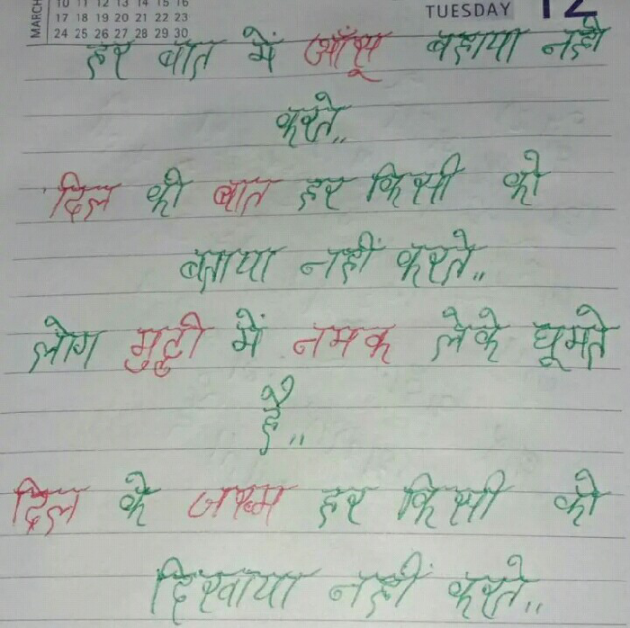 MARCH
10 11 12 13 14 15 16
17 18 19 20 21 22 23
24 25 26 27 28 29 30
TUESDAY 12
हर बात में आँसू बहाया नही
करते..
दिल की बात हर किसी को
बताया नहीं करते..
लोग मुट्ठी में नमक लेके घूमते
है..
दिल के जख्म हर किसी को
दिखाया नहीं करते..